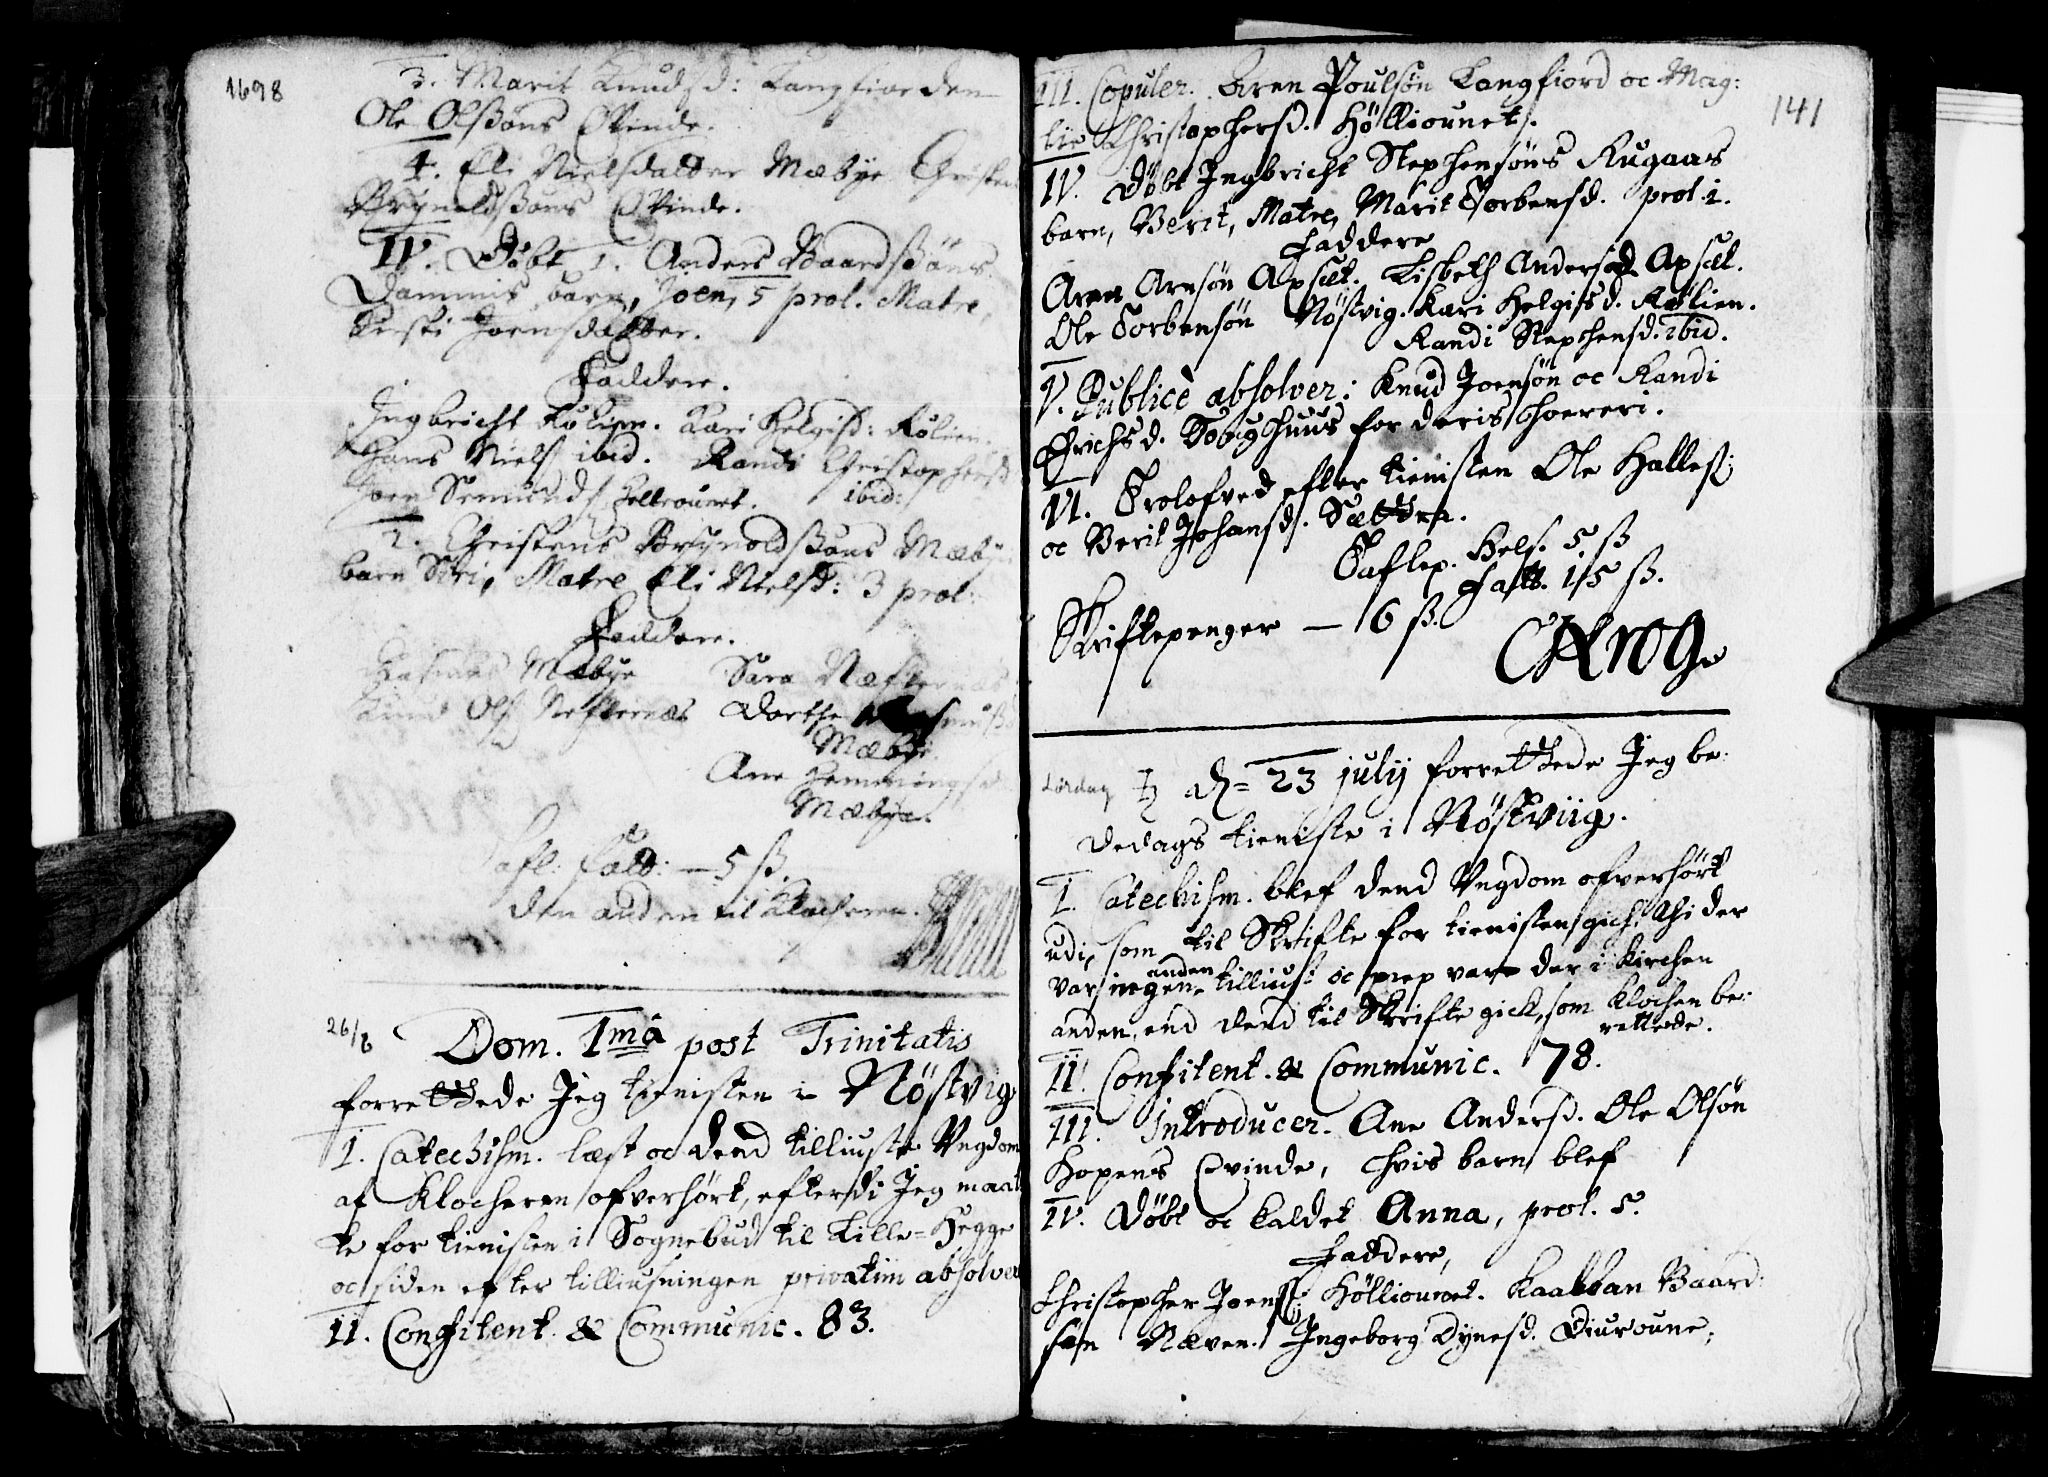 1698
3. Marit Knudsd: Langfiorden
Ole Olßøns Qvinde.
4. Eli Nielsdatter Mæbye Christen
Brynoldßøns Qvinde.
IV. Døbt 1. Anders Baardßøns
barn, Joen, 5 prol. Matre,
Joensdatter.
Faddere.
Ingbricht Rølien. Kari Helgisd: Rølien.
Hans Niels ibid. Randi Christophersd
Joen Semunds ibid:
2. Christens Brynoldßøns Mæbye
barn Siri, Matre Eli Nielsd: 3 prol:
Faddere.
Mæbye Sara Næsternæs
Knud Ols Nesternæs Dorthe
Mæbye.
Ane Hemmingsd
Mæbye.
afl: fald: — 5 ß.
den anden til Klocheren.
26/6 Dom. 1mâ post Trinitatis
forrettede Jeg tienisten i Nøstvig
I. Catechism. læst oc dend tilliuste Vngdom
af Klocheren ofverhørt, efterdi Jeg maat
te for tienisten i Sognebud til Lille-Hegge
oc siden efter tilliusningen privatim absolver
II. Confitent. & Communic. 83.
141
III. Copuler. Aren Poulsøn Langfiord oc Mag:
lie Christophersd. Hølliounet.
IV. Døbt Ingbricht Stephensøns Rugaas
barn, Berit, Matre, Marit Torbensd. prol. 1.
Faddere
Aren Arnsøn Apsæt. Lisbeth Andersd Apsæt.
Ole Torbensøn Nøstvig. Kari Helgisd. Rølien.
Randi Stephensd. ibid.
V. Publicè absolver: Knud Joensøn oc Randi
Erichsd. Toughuus for deris hoereri.
VI. Trolofved efter tienisten Ole Halles:
oc Berit Johansd. Sættra.
Taflep. Hels. 5 ß
Fatt. 15 ß.
Skriftepenger — 6 ß.
CKrog
Lørdag ♄ d= 23 july forrettede Jeg be:
dedags tieniste i Nøstviig.
I. Catechism. blef dend Vngdom ofverhørt
udi, som til Skrifte for tienisten gich, thi der
var ingen anden tilliust oc var der i Kirchen
anden, end dend til Skrifte gick, som Klochen be:
rettede.
II. Confitent. & Communic. 78.
III. Introducer. Ane Andersd. Ole Olsøn
Hopens Qvinde, hvis barn blef
IV. Døbt oc kaldet Anna, prol. 5.
Faddere,
Christopher Joens: Hølliounet. Kaalban Baard:
søn Næven. Ingeborg Dynesd. Diuroune;